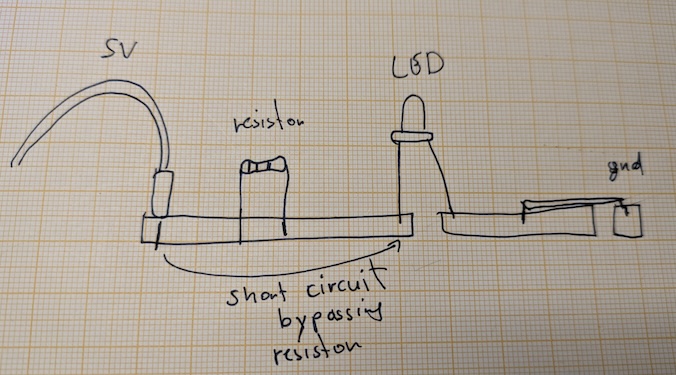 5V
LED
resistor
gnd
short circuit
bypassing
resistor